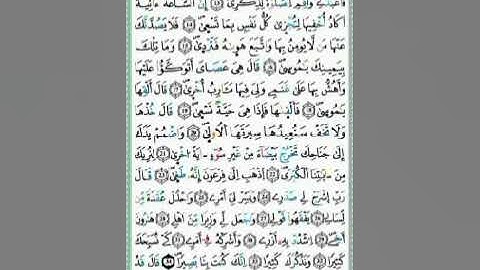 فَاعْبُدْنِي وَأَقِمِ الصَّلَوٰةَ لِذِكْرِي إِنَّ السَّاعَةَ ءَاتِيَةٌ
أَكَادُ أُخْفِيهَا لِتُجْزَىٰ كُلُّ نَفْسٍ بِمَا تَسْعَىٰ فَلَا يَصُدَّنَّكَ
عَنْهَا مَن لَّا يُومِنُ بِهَا وَاتَّبَعَ هَوَىٰهُ فَتَرْدَىٰ وَمَا تِلْكَ
بِيَمِينِكَ يَٰمُوسَىٰ قَالَ هِيَ عَصَايَ أَتَوَكَّؤُا عَلَيْهَا
وَأَهُشُّ بِهَا عَلَىٰ غَنَمِي وَلِيَ فِيهَا مَـَٔارِبُ أُخْرَىٰ قَالَ أَلْقِهَا
يَٰمُوسَىٰ فَأَلْقَىٰهَا فَإِذَا هِيَ حَيَّةٌ تَسْعَىٰ قَالَ خُذْهَا
وَلَا تَخَفْ سَنُعِيدُهَا سِيرَتَهَا الْأُولَىٰ وَاضْمُمْ يَدَكَ
إِلَىٰ جَنَاحِكَ تَخْرُجْ بَيْضَآءَ مِنْ غَيْرِ سُوٓءٍ ءَايَةً أُخْرَىٰ لِنُرِيَكَ
مِنْ ءَايَٰتِنَا الْكُبْرَى اذْهَبْ إِلَىٰ فِرْعَوْنَ إِنَّهُ طَغَىٰ قَالَ
رَبِّ اشْرَحْ لِي صَدْرِي وَيَسِّرْ لِي أَمْرِي وَاحْلُلْ عُقْدَةً مِّن
لِّسَانِي يَفْقَهُوا قَوْلِي وَاجْعَل لِّي وَزِيرًا مِّنْ أَهْلِي هَٰرُونَ
أَخِي اشْدُدْ بِهِ أَزْرِي وَأَشْرِكْهُ فِي أَمْرِي كَيْ نُسَبِّحَكَ
كَثِيرًا وَنَذْكُرَكَ كَثِيرًا إِنَّكَ كُنتَ بِنَا بَصِيرًا قَالَ قَدْ